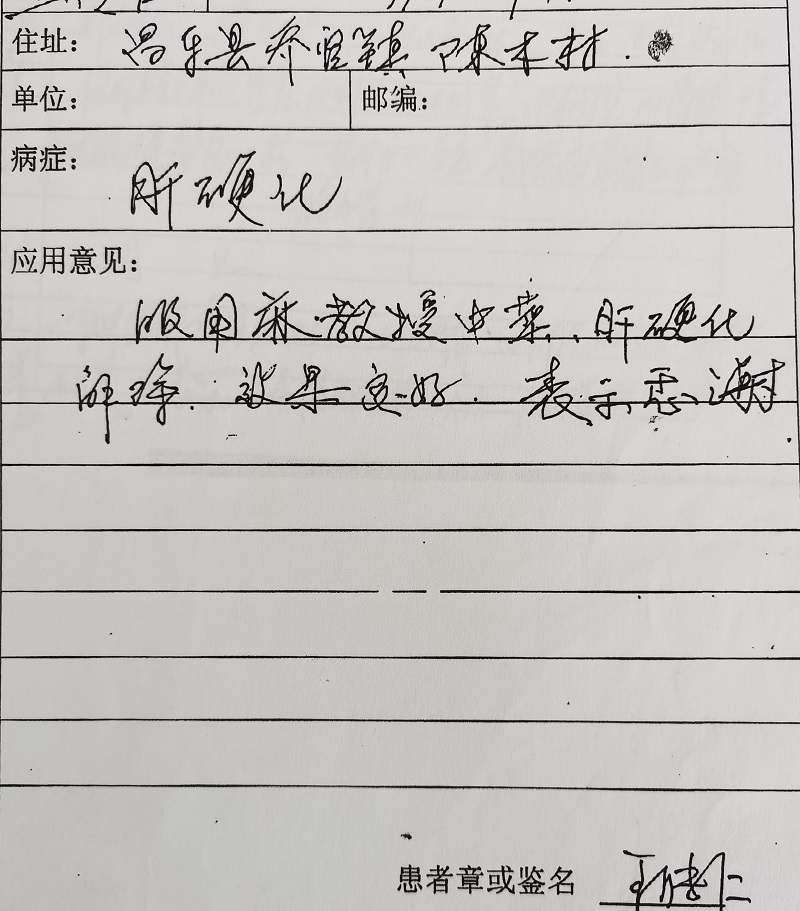 住址：昌乐县乔官镇 陈木村.
单位：
邮编：
病症：
肝硬化
应用意见：
服用麻教授中药、肝硬化
解除. 效果实好. 表示感谢
患者章或鉴名